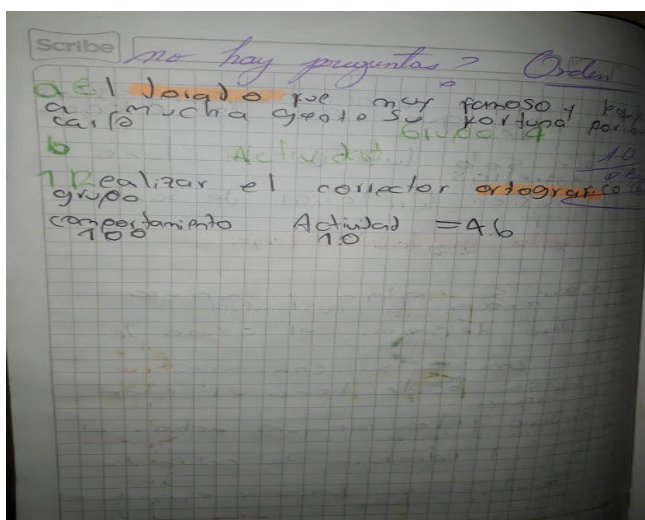 Scribe
no hay preguntas? Orden
a el dorado fue muy famoso y
a mucha gente su fortuna por
caifo
Grupo 4
b Actividad 10
1 Realizar el corrector ortografico
grupo
comportamiento Actividad = 4.6
100 10